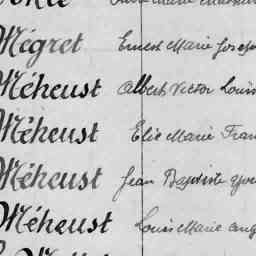 Mégret Ernest Marie Joseph
Méheust Albert Victor Louis
Méheust Elie Marie Fran
Méheust Jean Baptiste Yves
Méheust Louis Marie Ang